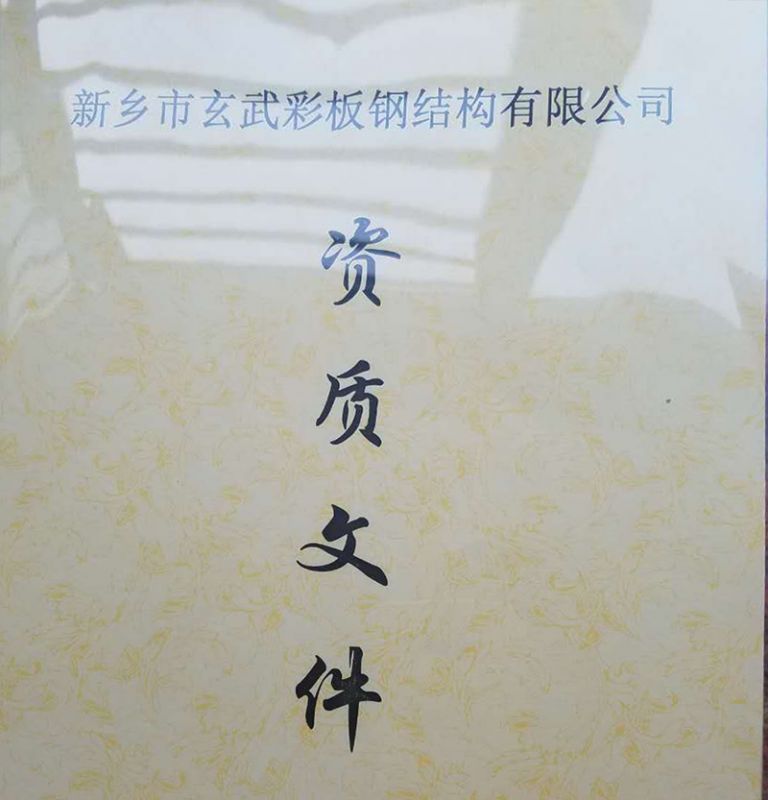 新乡市玄武彩板钢结构有限公司
资质文件